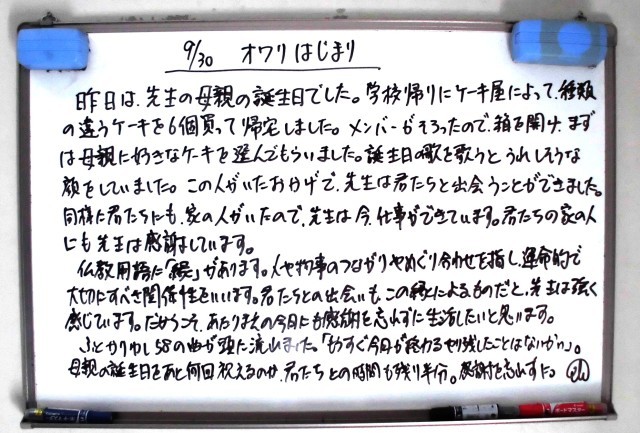 9/30 オワリはじまり
昨日は、先生の母親の誕生日でした。学校帰りにケーキ屋によって、種類
の違うケーキを6個買って帰宅しました。メンバーがそろったので、箱を開け、まず
は母親に好きなケーキを選んでもらいました。誕生日の歌を歌うと、うれしそうな
顔をしていました。この人がいたおかげで、先生は君たちと出会うことができました。
同様に君たちにも、家の人がいたので、先生は今、仕事ができています。君たちの家の人
にも先生は感謝しています。
仏教用語に「縁」があります。人や物事のつながりやめぐり合わせを指し、運命的で
大切にすべき関係性をいいます。君たちとの出会いも、この縁によるものだと、先生は強く
感じています。だからこそ、あたりまえの今日にも感謝を忘れずに生活したいと思います。
ふとかりゆし58の曲が頭に流れました。「もうすぐ今日が終わる やり残したことはないかい」。
母親の誕生日をあと何回祝えるのか、君たちとの時間も残り半分。感謝を忘れずに。